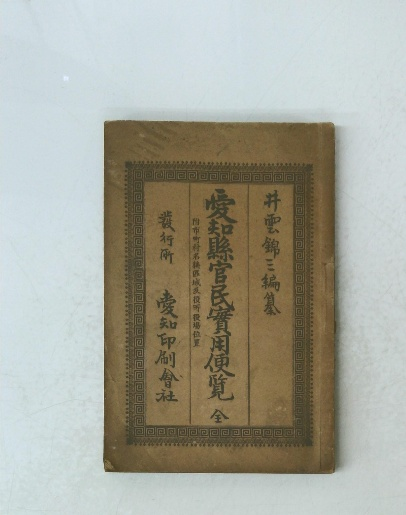 井雲錦三編纂
愛知縣官民實用便覧 全
附市町村名稱區域及役所役場位置
發行所 愛知印刷會社